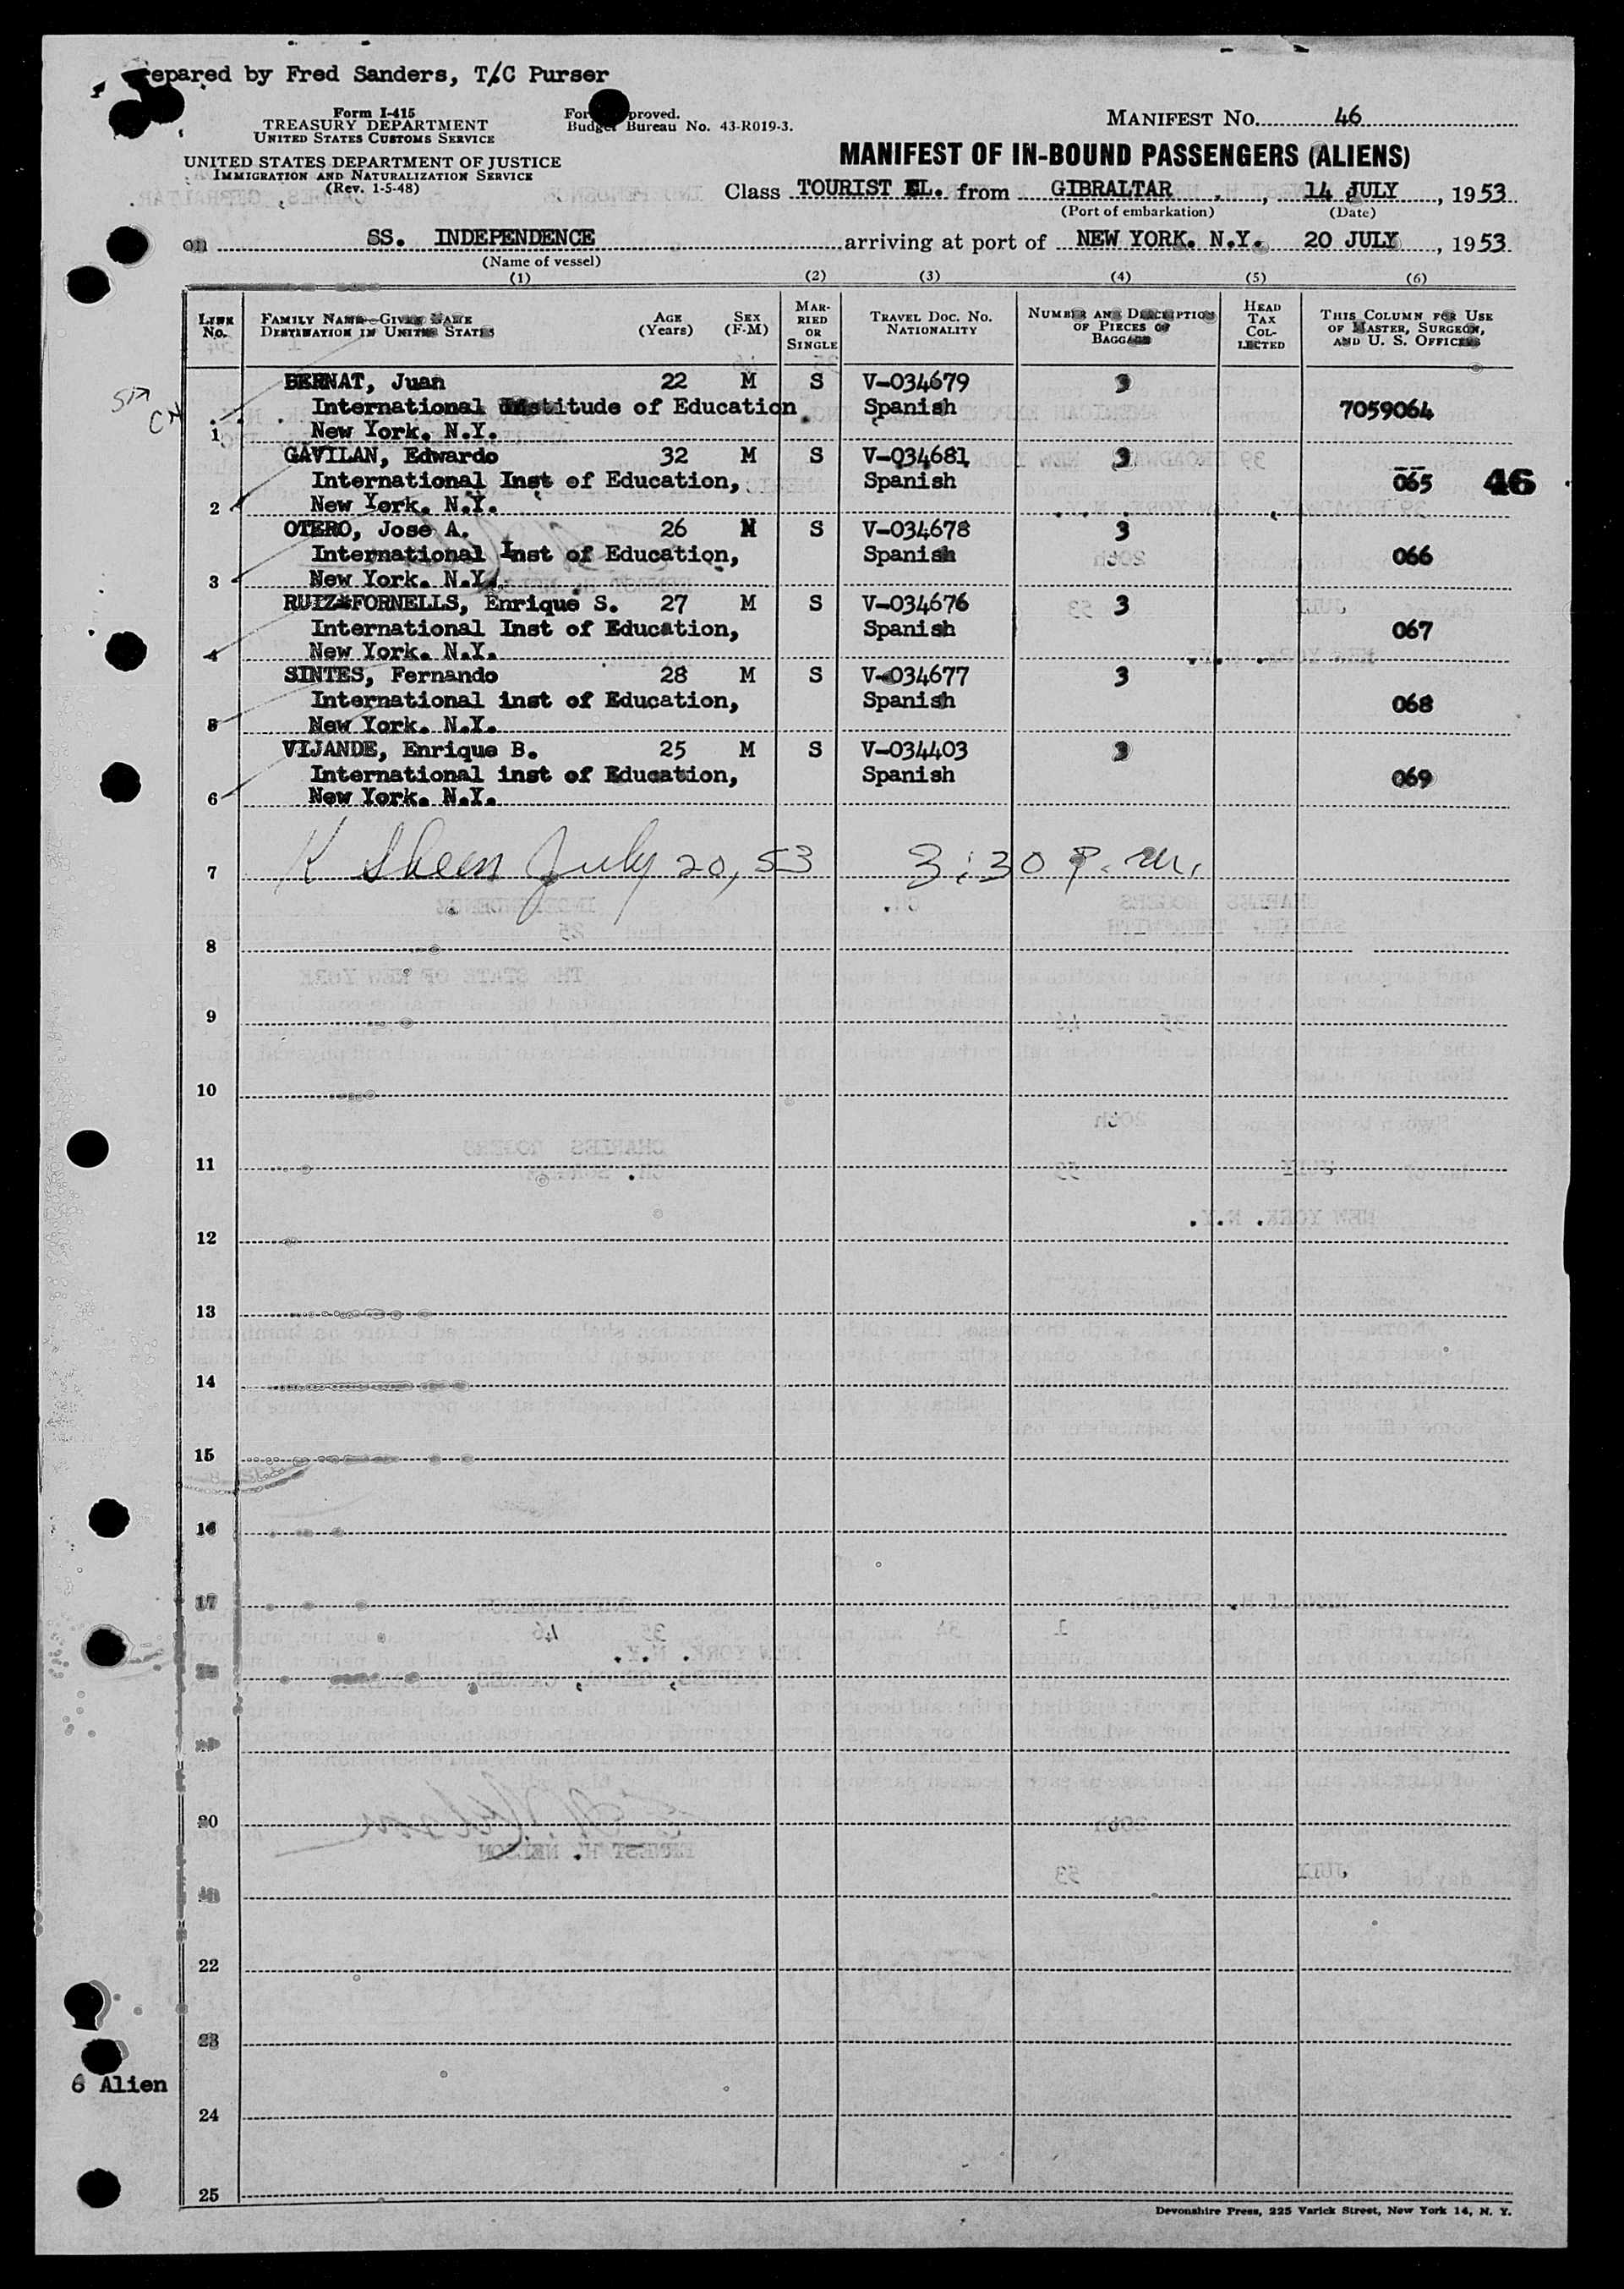 epared by Fred Sanders, T/C Purser
Form I-415
TREASURY DEPARTMENT
UNITED STATES CUSTOMS SERVICE
UNITED STATES DEPARTMENT OF JUSTICE
IMMIGRATION AND NATURALIZATION SERVICE
(Rev. 1-5-48)
For proved.
Budget Bureau No. 43-R019-3.
MANIFEST NO. 46
MANIFEST OF IN-BOUND PASSENGERS (ALIENS)
Class TOURIST from GIBRALTAR, 14 JULY, 1953
(Port of embarkation) (Date)
on SS. INDEPENDENCE arriving at port of NEW YORK. N.Y. 20 JULY, 1953
(Name of vessel)
(1) (2) (3) (4) (5) (6)
LINE No. FAMILY NAME—GIVEN NAME DESTINATION IN UNITED STATES AGE (Years) SEX (F-M) MARRIED OR SINGLE TRAVEL DOC. NO. NATIONALITY NUMBER AND DESCRIPTION OF PIECES OF BAGGAGE HEAD TAX COLLECTED THIS COLUMN FOR USE OF MASTER, SURGEON, AND U. S. OFFICERS
BERNAT, Juan 22 M S V-034679 3
International Institude of Education Spanish 7059064
1 New York. N.Y.
GAVILAN, Edwardo 32 M S V-034681 3
International Inst of Education, Spanish 065 46
2 New York. N.Y.
OTERO, Jose A. 26 M S V-034678 3
International Inst of Education, Spanish 066
3 New York. N.Y.
RUIZ*FORNELLS, Enrique S. 27 M S V-034676 3
International Inst of Education, Spanish 067
4 New York. N.Y.
SINTES, Fernando 28 M S V-034677 3
International inst of Education, Spanish 068
5 New York. N.Y.
VIJANDE, Enrique B. 25 M S V-034403 3
International inst of Education, Spanish 069
6 New York. N.Y.
7 K Sheen July 20, 53 3:30 P.M.
8
9
10
11
12
13
14
15
16
17
20
22
23
24
6 Alien
25
Devonshire Press, 225 Varick Street, New York 14, N. Y.